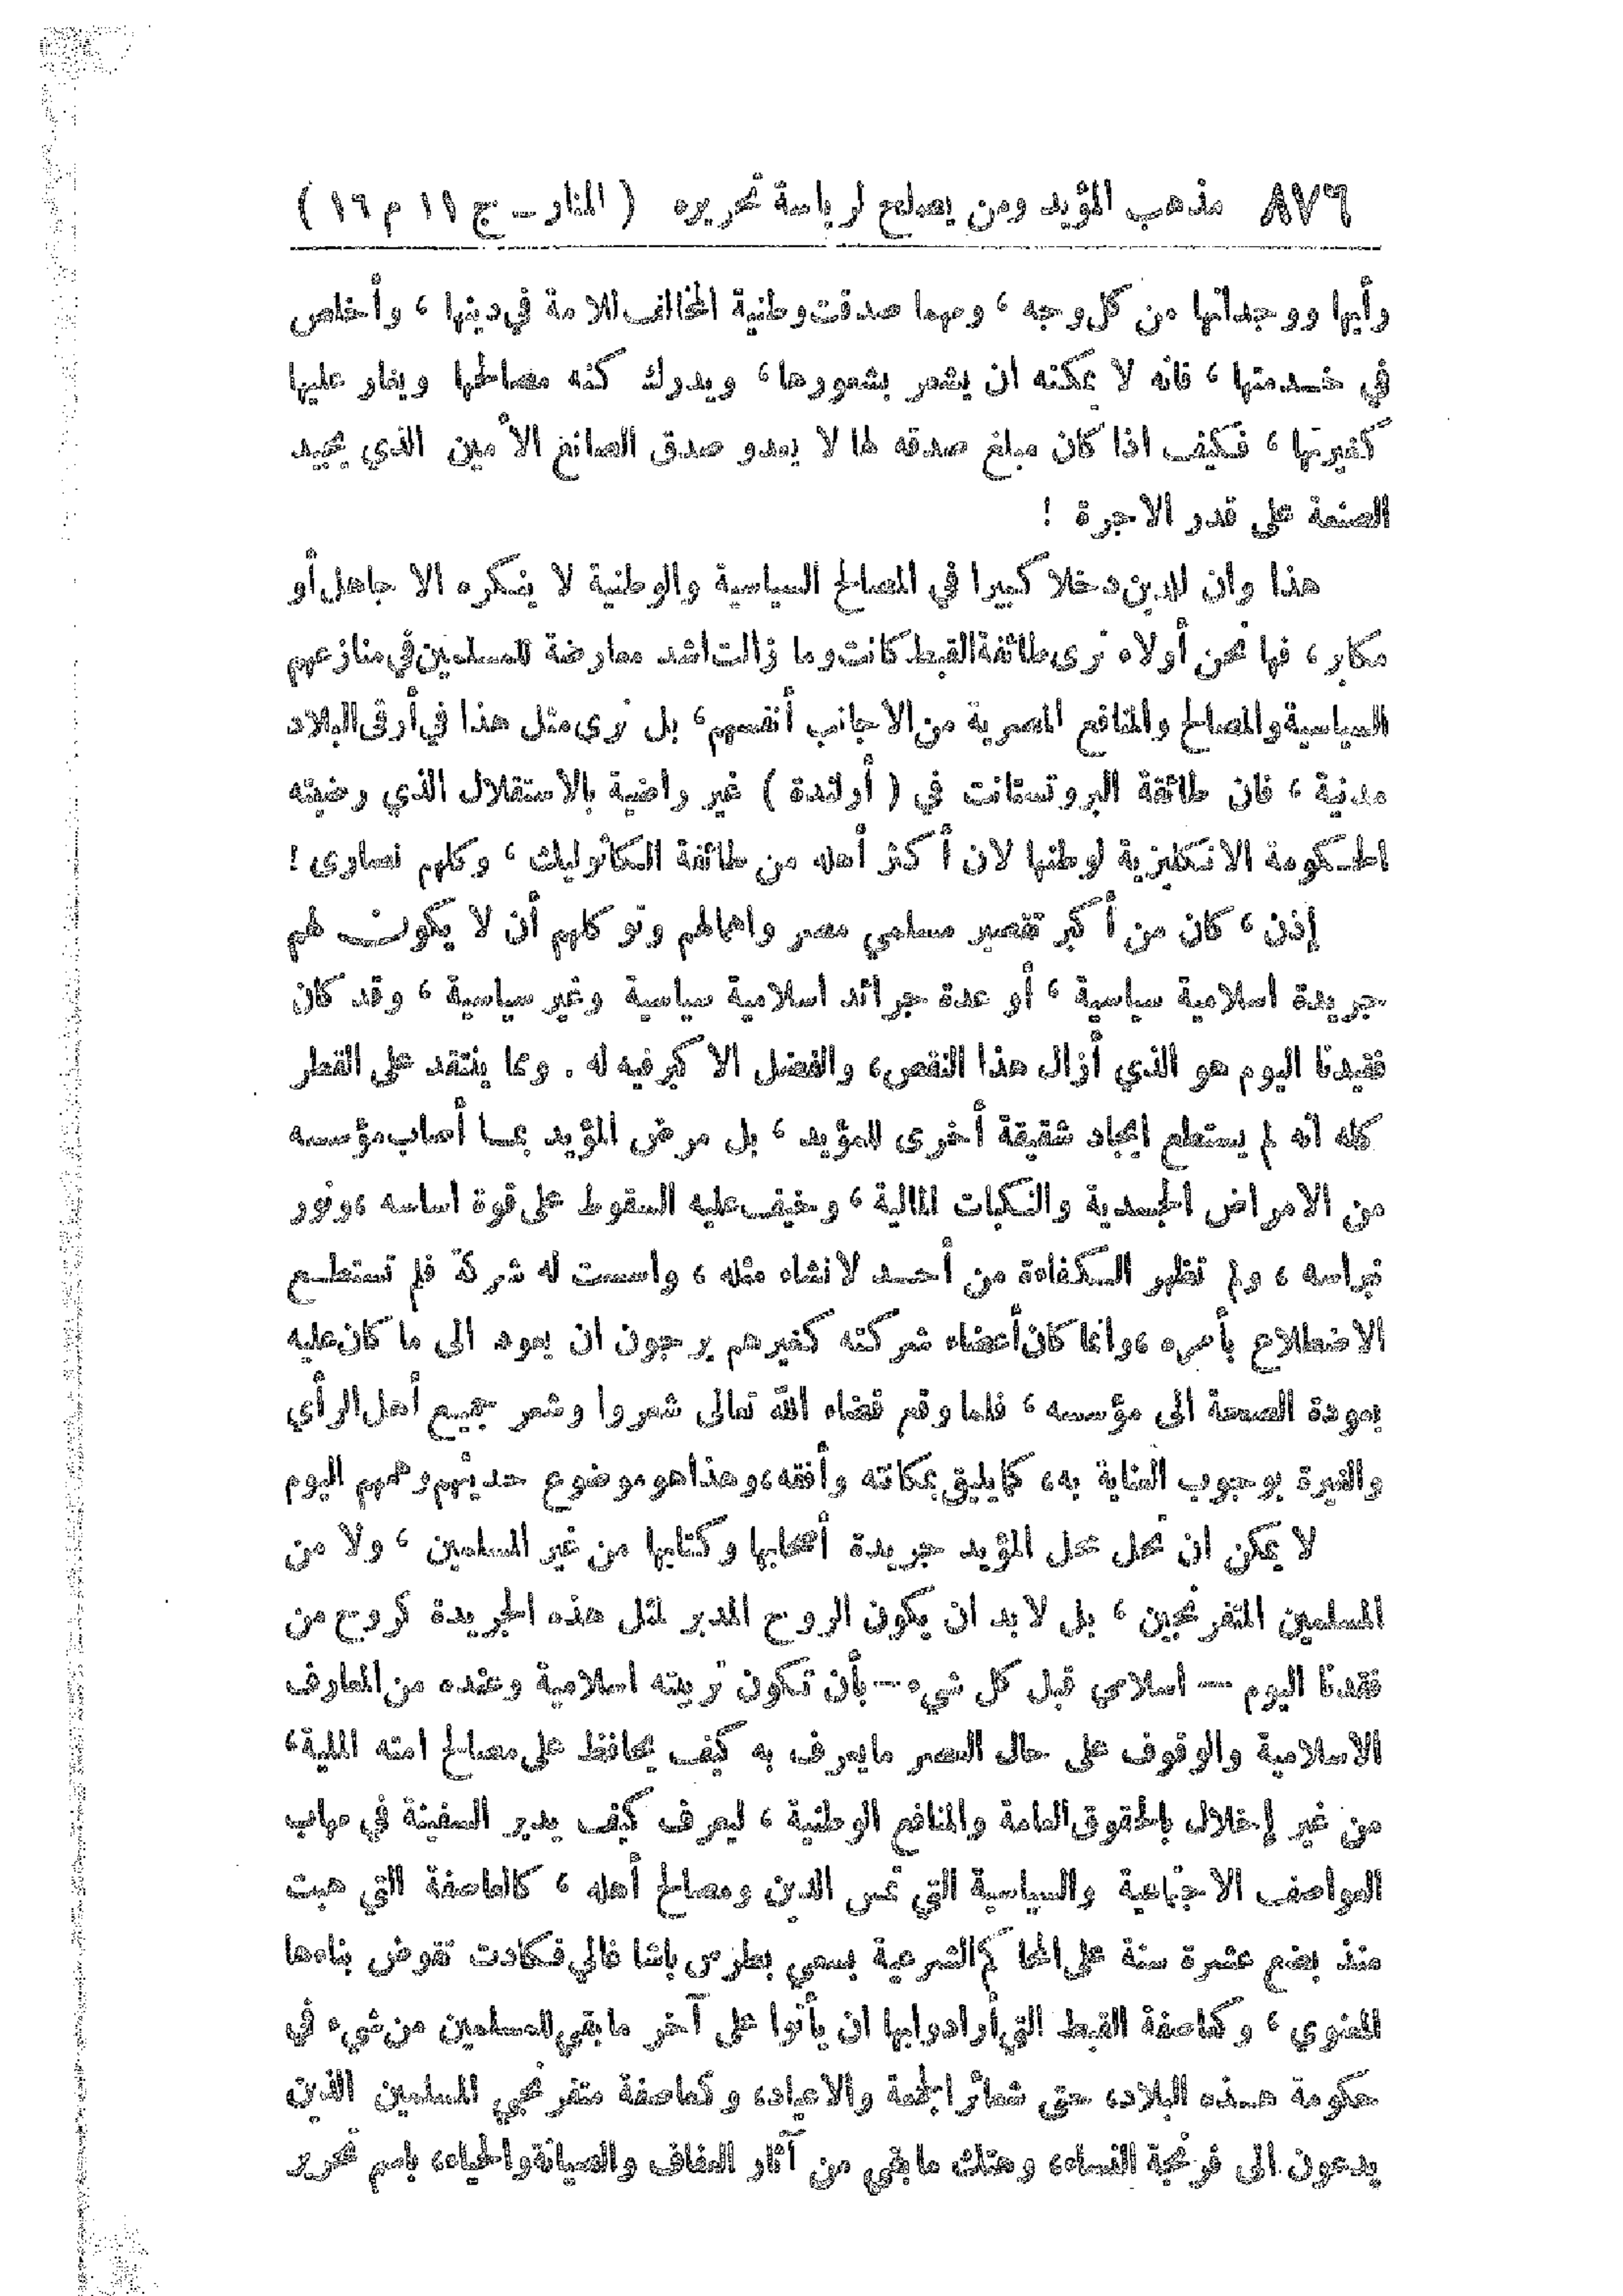 ٨٧٦ مذهب المؤيد ومن يصلح لرياسة تحريره ( المنار ــ ج ١١ م ١٦ )
رأيها ووجدانها من كل وجه ، ومهما صدقت وطنية المخالف للامة في دينها ، وأخلص
في خدمتها ، فانه لا يمكنه ان يشعر بشعورها ، ويدرك كنه مصالحها ويغار عليها
كغيرتها ، فكيف اذا كان مبلغ صدقه لها لا يعدو صدق الصانع الأمين الذي يجيد
الصنعة على قدر الاجرة !
هذا وان للدين دخلا كبيرا في المصالح السياسية والوطنية لا ينكره الا جاهل أو
مكابر ، فها نحن أولاء نرى طائفة القبط كانت وما زالت اشد معارضة للمسلمين في منازعهم
السياسية والمصالح والمنافع المصرية من الاجانب أنفسهم ، بل نرى مثل هذا في أرقى البلاد
مدنية ، فان طائفة البروتستانت في ( أرلندة ) غير راضية بالاستقلال الذي رضيته
الحكومة الانكليزية لوطنها لان أكثر أهله من طائفة الكاثوليك ، وكلهم نصارى !
إذن ، كان من أكبر تقصير مسلمي مصر واهمالهم وتوكلهم أن لا يكون لهم
جريدة اسلامية سياسية ، أو عدة جرائد اسلامية سياسية وغير سياسية ، وقد كان
فقيدنا اليوم هو الذي أزال هذا النقص ، والفضل الاكبر فيه له . ومما ينتقد على القطر
كله انه لم يستطع ايجاد شقيقة أخرى للمؤيد ، بل مرض المؤيد بما أصاب مؤسسه
من الامراض الجسدية والنكبات المالية ، وخيف عليه السقوط على قوة اساسه ، ونور
نبراسه ، ولم تظهر الكفاءة من أحد لانشاء مثله ، واسست له شركة فلم تستطع
الاضطلاع بأمره ، وانما كان أعضاء شركته كغيرهم يرجون ان يعود الى ما كان عليه
بعودة الصحة الى مؤسسه ، فلما وقع قضاء الله تعالى شعروا وشعر جميع أهل الرأي
والغيرة بوجوب العناية به ، كما يليق بمكانته وأفقه ، وهذا هو موضوع حديثهم وهمهم اليوم
لا يمكن ان تحل محل المؤيد جريدة أصحابها وكتابها من غير المسلمين ، ولا من
المسلمين المتفرنجين ، بل لا بد ان يكون الروح المدبر لمثل هذه الجريدة كروح من
فقدنا اليوم — اسلامي قبل كل شيء — بأن تكون تربيته اسلامية وعنده من المعارف
الاسلامية والوقوف على حال العصر ما يعرف به كيف يحافظ على مصالح امته الملية ،
من غير إخلال بالحقوق العامة والمنافع الوطنية ، ليعرف كيف يدير السفينة في مهاب
العواصف الاجتماعية والسياسية التي تمس الدين ومصالح أهله ، كالعاصفة التي هبت
منذ بضع عشرة سنة على المحاكم الشرعية بسعي بطرس باشا غالي فكادت تقوض بناءها
المعنوي ، وكعاصفة القبط التي أرادوا بها ان يأتوا على آخر ما بقي للمسلمين من شيء في
حكومة هذه البلاد ، حتى شعائر الجمعة والاعياد ، وكعاصفة متفرنجي المسلمين الذين
يدعون الى فرنجة النساء ، وهتك ما بقي من آثار العفاف والصيانة والحياء ، باسم تحرير